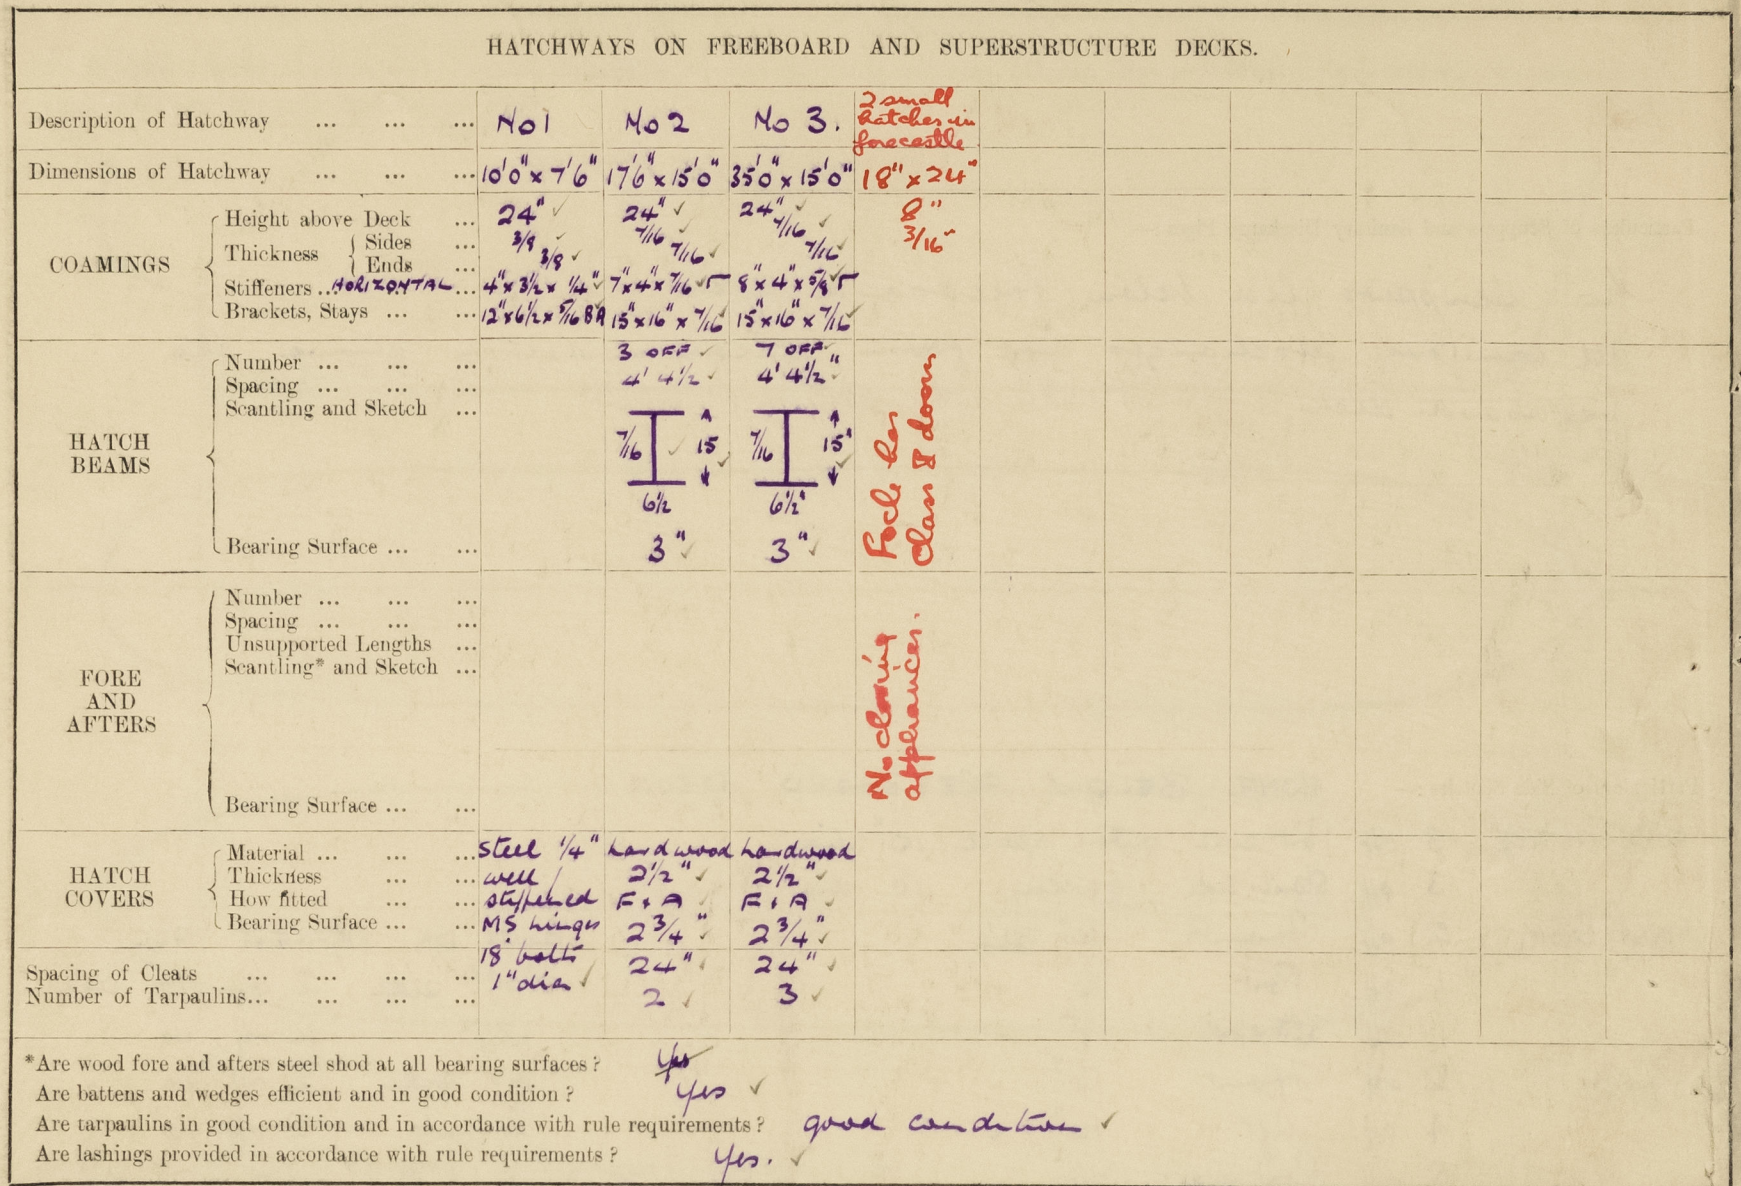 HATCHWAYS ON FREEBOARD AND SUPERSTRUCTURE DECKS.
Description of Hatchway ... ... ... No 1 No 2 No 3. 2 small hatches in forecastle
Dimensions of Hatchway ... ... ... 10'0" x 7'6" 17'6" x 15'0" 35'0" x 15'0" 18" x 24"
COAMINGS
Height above Deck ... 24" ✓ 24" ✓ 24" ✓ 8"
Thickness Sides ... 3/8 ✓ 7/16 7/16 ✓ 3/16"
Ends ... 3/8 ✓ 7/16 ✓ 7/16 ✓
Stiffeners ... HORIZONTAL ... 4" x 3 1/2 x 1/4" ✓ 7" x 4" x 7/16 8" x 4" x 5/8
Brackets, Stays ... ... 12" x 6 1/2 x 5/16 BA 15" x 16" x 7/16 15" x 16" x 7/16
HATCH BEAMS
Number ... ... ... 3 OFF ✓ 7 OFF ✓
Spacing ... ... ... 4' 4 1/2 ✓ 4' 4 1/2" ✓
Scantling and Sketch ...
7/16 ✓ 15 ✓ 7/16 15" ✓
6 1/2 6 1/2"
Bearing Surface ... ... 3" ✓ 3" ✓
Focle has
Class II doors
FORE AND AFTERS
Number ... ... ...
Spacing ... ... ...
Unsupported Lengths ...
Scantling* and Sketch ...
Bearing Surface ... ...
No closing
appliances.
HATCH COVERS
Material ... ... ... steel 1/4" hardwood hardwood
Thickness ... ... well 2 1/2" ✓ 2 1/2" ✓
How fitted ... ... stiffened F & A ✓ F & A ✓
Bearing Surface ... ... MS hinges 2 3/4" ✓ 2 3/4" ✓
Spacing of Cleats ... ... ... ... 18" bolts 24" ✓ 24" ✓
Number of Tarpaulins... ... ... ... 1" dia ✓ 2 ✓ 3 ✓
*Are wood fore and afters steel shod at all bearing surfaces? Yes
Are battens and wedges efficient and in good condition? Yes ✓
Are tarpaulins in good condition and in accordance with rule requirements? good condition ✓
Are lashings provided in accordance with rule requirements? Yes. ✓